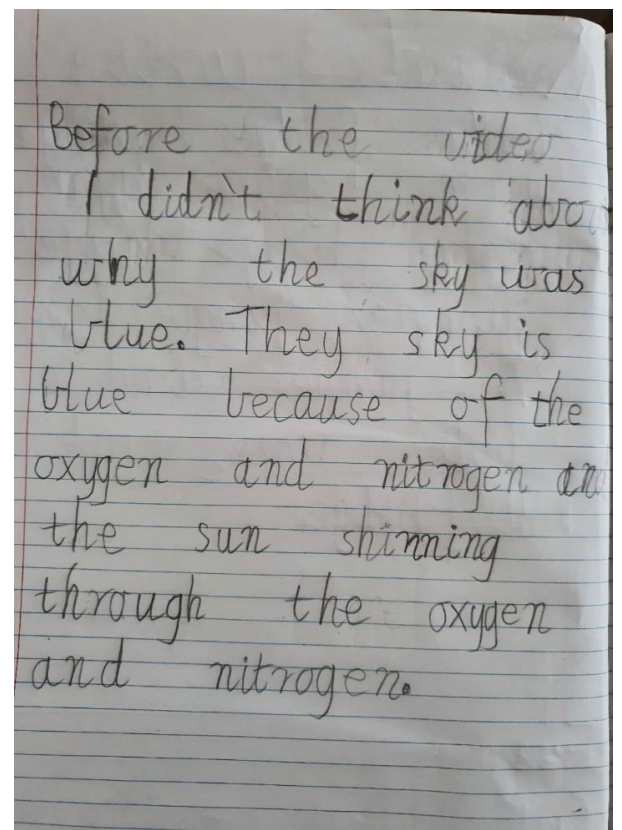 Before the video
I didn't think abo
why the sky was
blue. They sky is
blue because of the
oxygen and nitrogen an
the sun shinning
through the oxygen
and nitrogen.